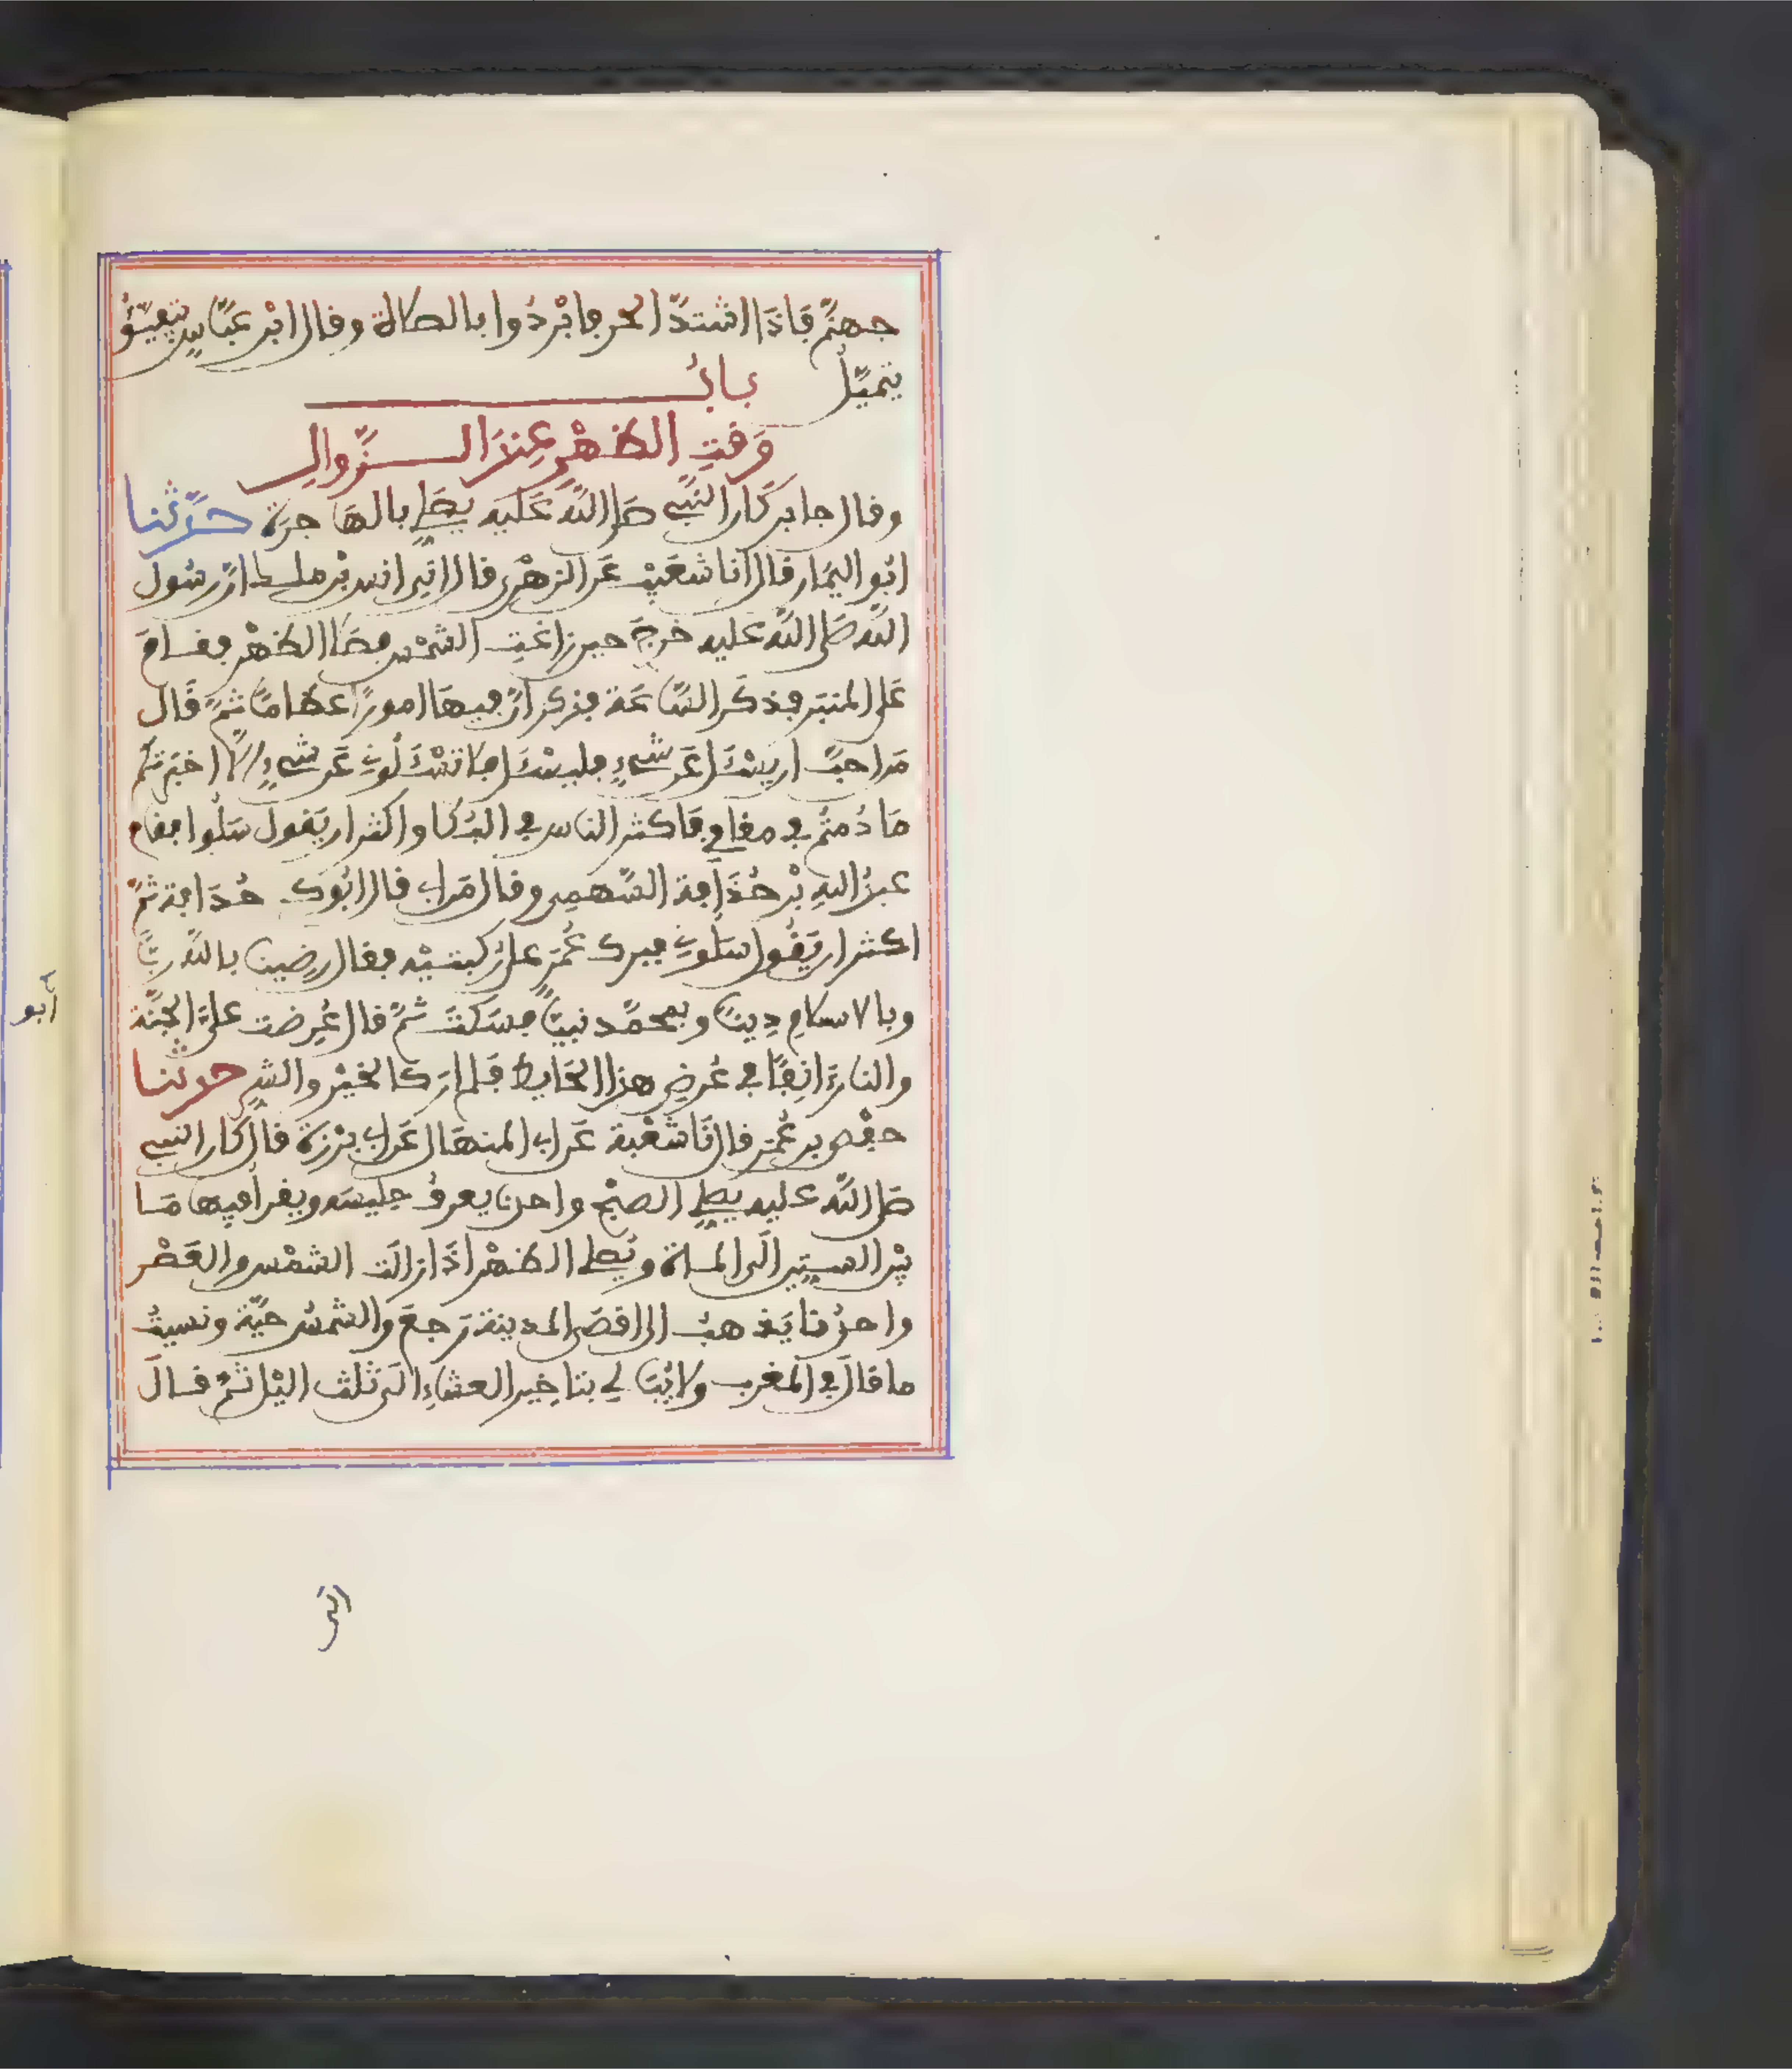 جهنم فاذا اشتد الحر فابردوا بالصلاة وقال ابن عباس يتفيؤ
يتميل باب
وقت الظهر عند الزوال
وقال جابر كان النبي صلى الله عليه يصلي بالهاجرة حدثنا
ابو اليمان قال انا شعيب عن الزهري قال اخبرني انس بن ملك ان رسول
الله صلى الله عليه خرج حين زاغت الشمس فصلى الظهر فقام
على المنبر فذكر الساعة فذكر ان فيها امورا عظاما ثم قال
من احب ان يسئل عن شيء فليسئل فلا تسئلوني عن شيء الا اخبرتكم
ما دمتم في مقامي فاكثر الناس في البكا واكثر ان يقول سلوا فقام
عبد الله بن حذافة السهمي وقال من ابي قال ابوك حذافة ثم
اكثر ان يقول سلوني فبرك عمر على ركبتيه فقال رضينا بالله ربا
وبالاسلام دينا وبمحمد نبيا فسكت ثم قال عرضت علي الجنة
والنار انفا في عرض هذا الحايط فلم ار كالخير والشر حدثنا
حفص بن عمر قال نا شعبة عن ابي المنهال عن ابي برزة قال كان النبي
صلى الله عليه يصلي الصبح واحدنا يعرف جليسه ويقرأ فيها ما
بين الستين الى الماية ويصلي الظهر اذا زالت الشمس والعصر
واحدنا يذهب الى اقصى المدينة رجع والشمس حية ونسيت
ما قال في المغرب ولا يبالي بتاخير العشاء الى ثلث اليل ثم قال
الى
ابو